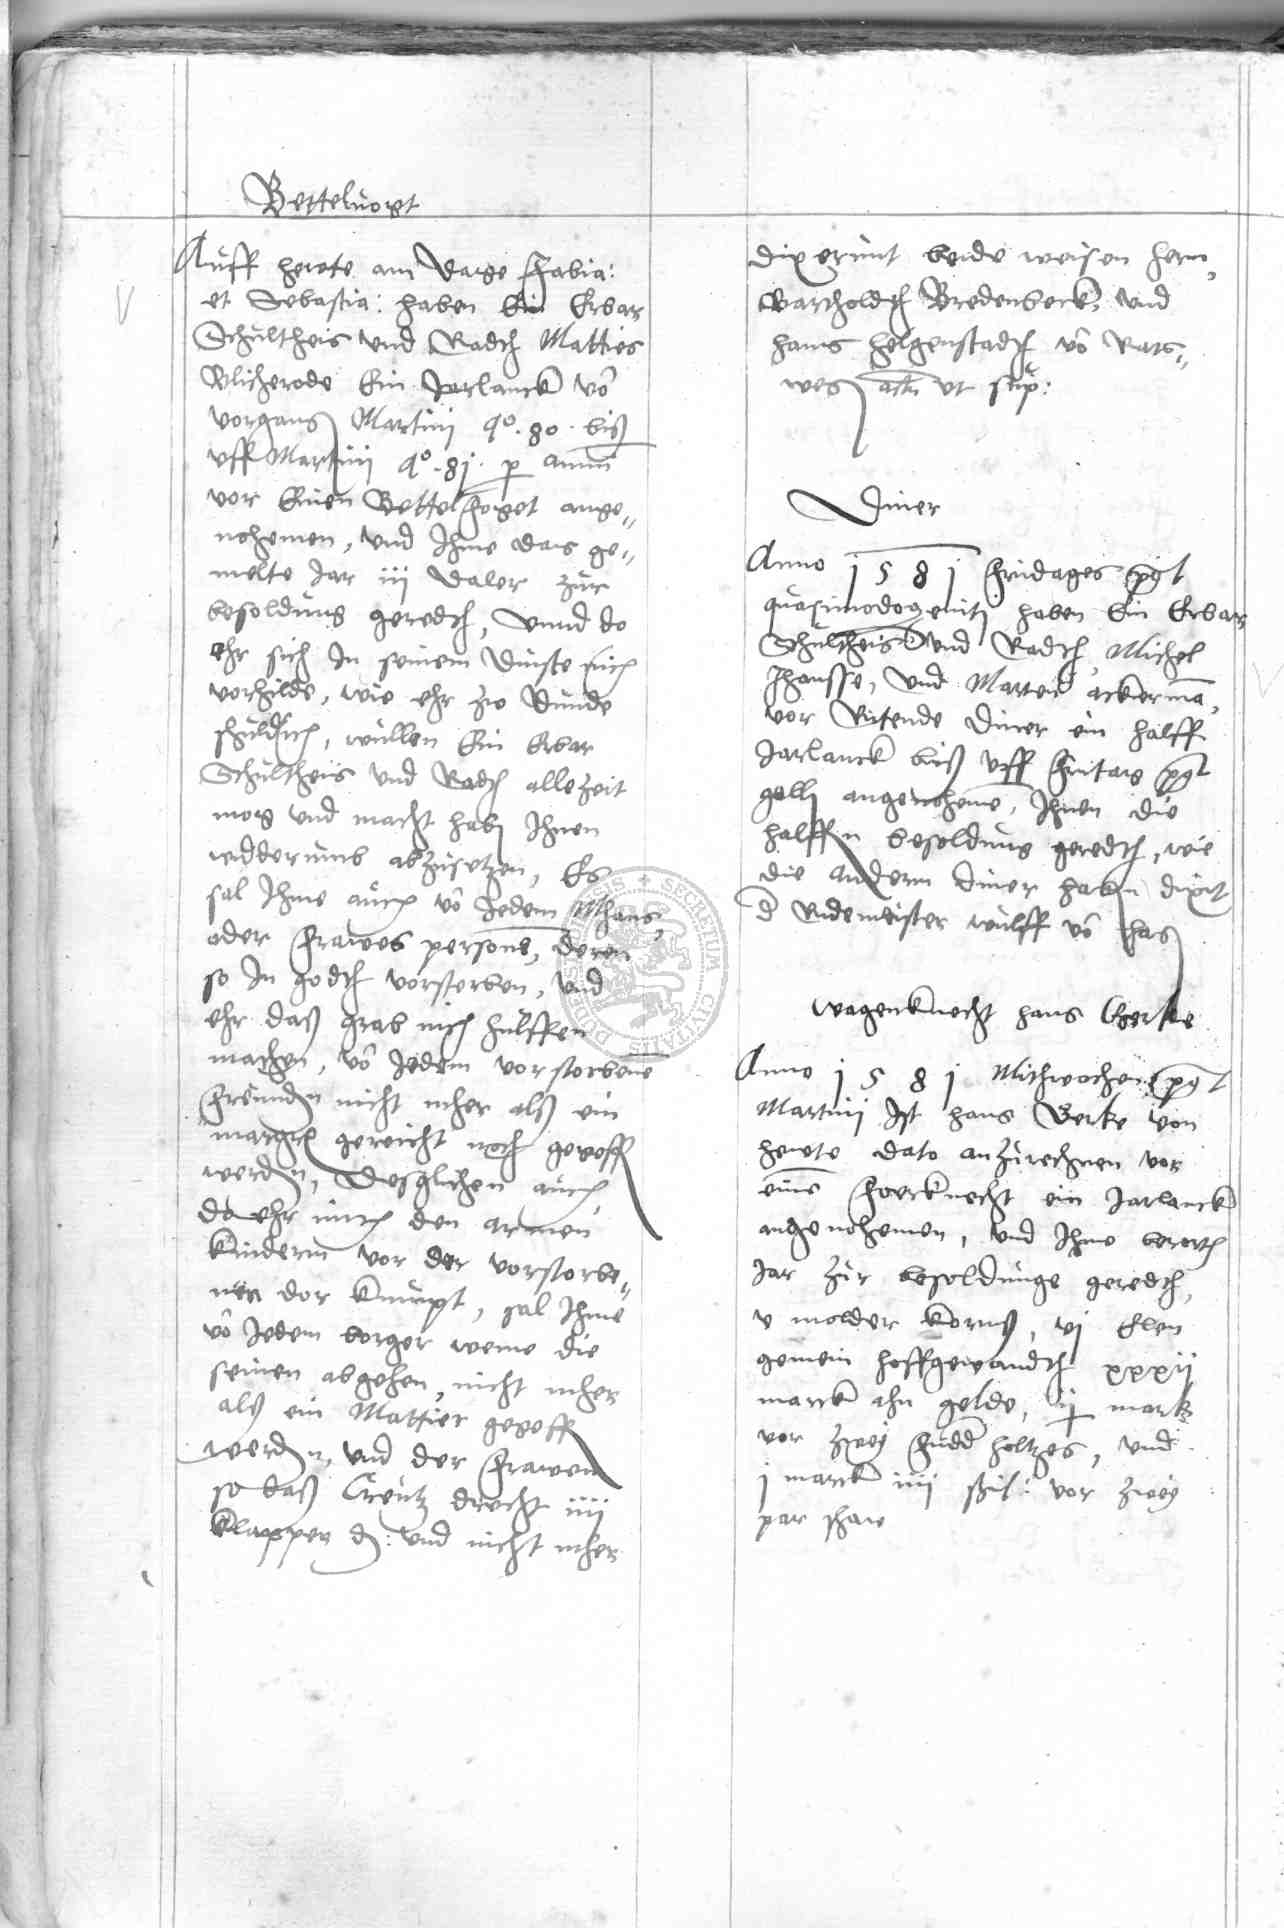 Bettelvogt
Auff heute am Dage Fabia:
et Sebastia: haben Ein Erbar
Schultheis und Radth Matties
Blicherode Ein Jarlanck vō
vorgangs Martini Aº . 80 . biß
uff Martini Aº . 81 . p annū
vor Einen Bettelfoget ange„
nohemen, und Ihme das ge„
melte Jar iij Daler zur
besoldung geredth, unnd do
ehr sich In seinem Dinste nich
vorhilde, wie ehr zu Dunde
schuldich, wullen Ein Erbar
Schultheis und Radth alle zeit
mog und macht hab Ihnen
widderumb abzusetzen, Es
sal Ihme auch vō Jedem Mhans,
oder Frawes persone, deren
so In Godth vorstorben, und
ehr daß grab nich hulffen
machen, vō Jedem vorstorbene
Freunden nicht mher alß ein
margch gereicht noch gegeff
werden, Desglichen auch
do ehr mith den armen
Kindern vor der vorstorbe„
nen dor Kumpt, sal Ihme
vō Jedem borger weme die
seinen abgehen, nicht mher
alß ein Mattier gegeff
werden, und der Frawen
so daß Creutz drecht iiij
Klappen d: und nicht mher
dixerunt beide weisen hern,
Bartholdth Bredenbeck, und
hans helgenstadth vō Rats„
weg act ut sup:
Diner
Anno 1581 Fridages pgt
quasimodogeniti haben Ein Erbar
Schultheis und Radth, Michel
Jhansse, und Marten ackermā,
vor Ritende Diner ein halff
Jarlanck biß uff Fritag pgt
galli angenohemē, Ihnen die
halffen besoldung geredth, wie
die andern diner haben dixit
d Ridemeister wulff vō has
wagenknecht hans Gerke
Anno 1581 Mithwochen pgt
Martinij Ist hans Gerke von
heute dato anzurechnen vor
eine Foerknecht ein Jarlanck
angenohemen, und Ihme berorth
Jar zur besoldunge geredth,
v molder Korns, vj Elen
gemein hoffgewandth xxxij
marck ahn gelde, ij mark
vor zwey Fudd holtzes, und
j marck iiij schil: vor zwey
par schaw